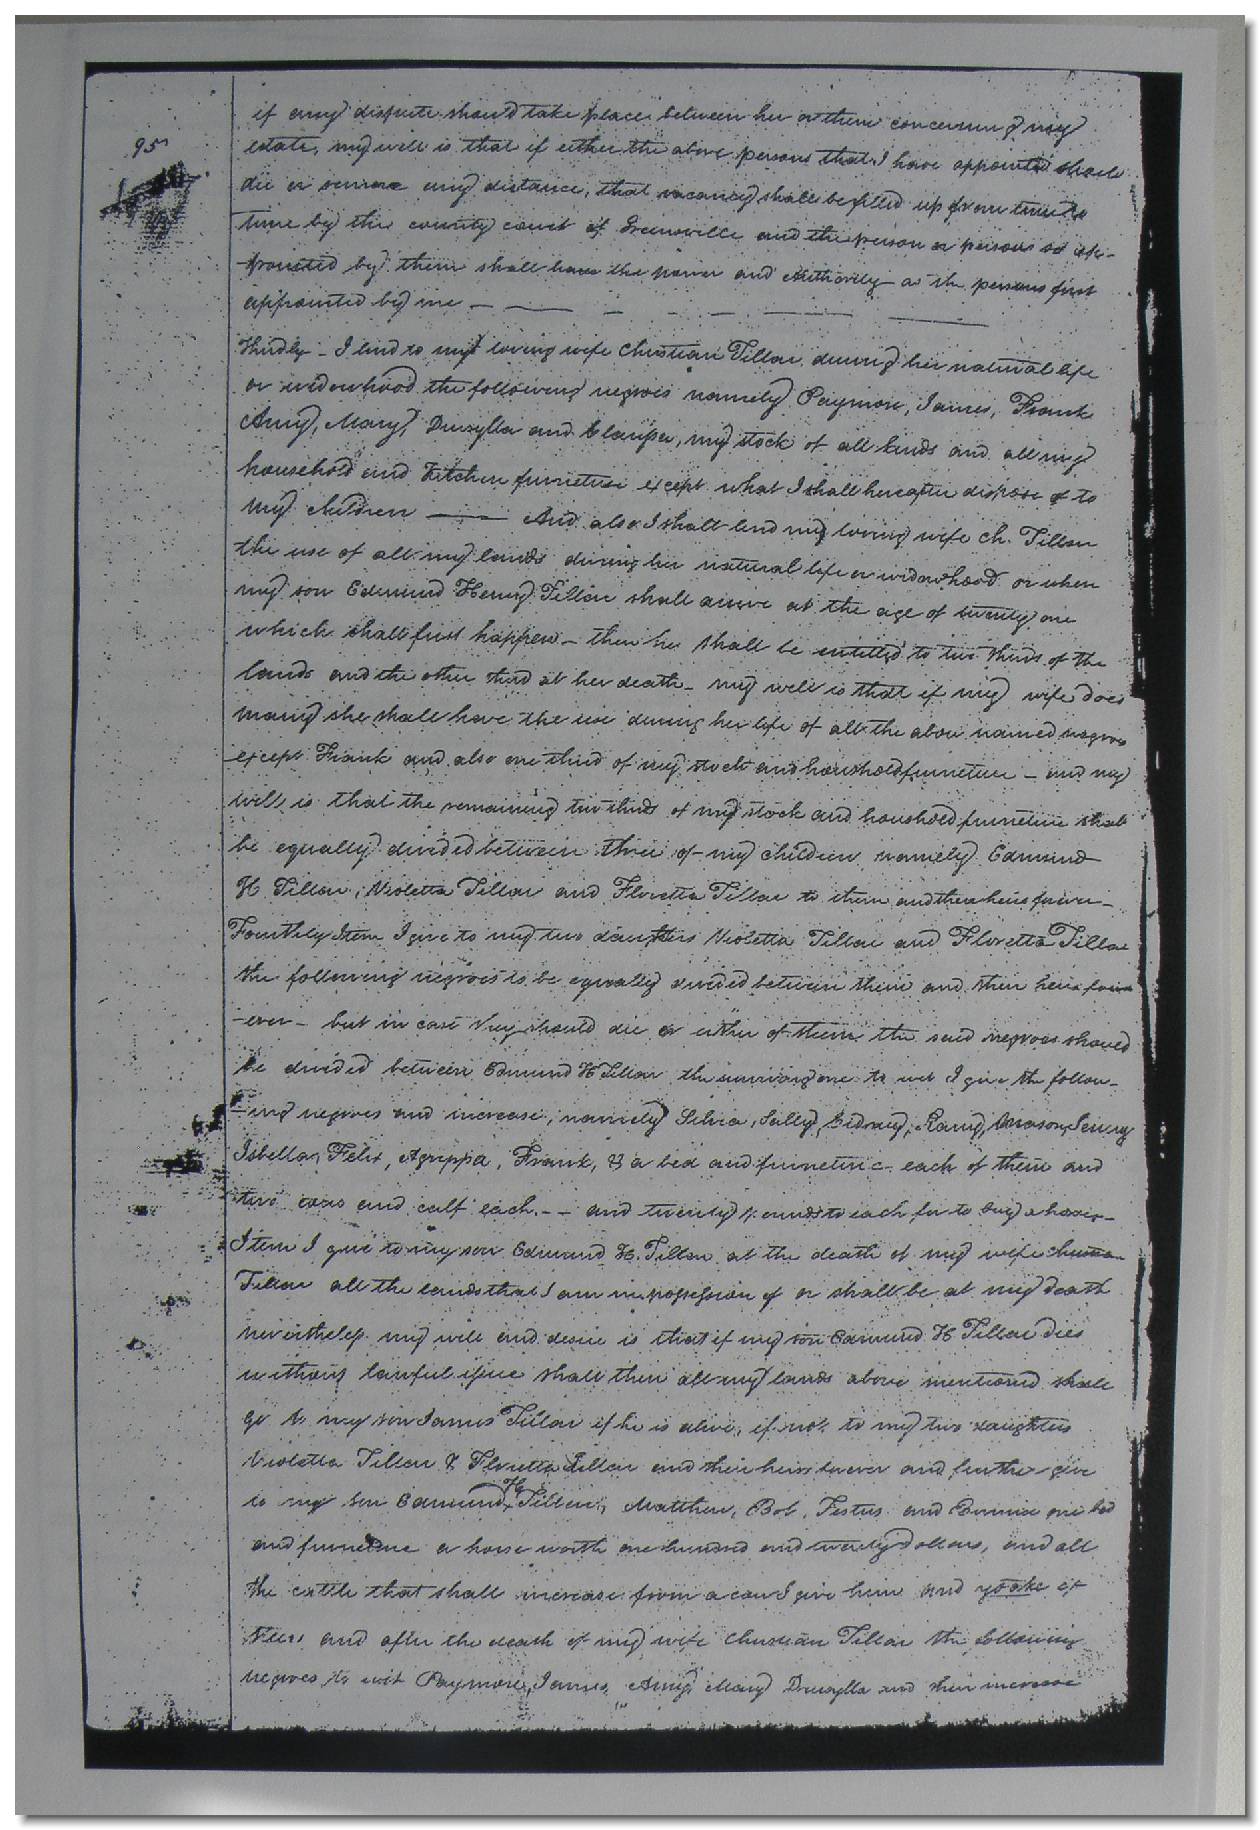 95
if any dispute should take place between her or them concerning my
estate, my will is that if either the above persons that I have appointed should
die or remove any distance, that vacancy shall be filled up from time to
time by the county court of Greensville and the person or persons so ap-
-pointed by them shall have the power and Authority as the persons first
appointed by me —
Thirdly — I lend to my loving wife Christian Tillar during her natural life
or widowhood the following negroes namely Paymore, James, Frank
Amy, Mary, Drusylla and my stock of all kinds and all my
household and kitchen furneture except what I shall hereafter dispose of to
my children —— And also I shall lend my loving wife Ch. Tillar
the use of all my lands during her natural life or widowhood or when
my son Edmund Henry Tillar shall arive at the age of twenty one
which shall first happen — then he shall be entitled to two thirds of the
lands and the other third at her death — my will is that if my wife does
marry she shall have the use during her life of all the above named negroes
except Frank and also one third of my stock and houshold furneture — and my
will is that the remaining two thirds of my stock and houshold furneture shall
be equally divided between three of my children namely Edmund
H Tillar, Violetta Tillar and Floretta Tillar to them and their heirs forever —
Fourthly Item I give to my two daughters Violetta Tillar and Floretta Tillar
the following negroes to be equally divided between them and their heirs forev
-ever — but in case they should die or either of them the said negroes should
be divided between Edmund H Tillar the surviving one to wit I give the follow-
-ing negroes and increase, namely Silvia, Sally, Sidney, Ramy, Mason,
Isbella, Felix, Agrippa, Frank, & a bed and furneture each of them and
two cows and calf each — — and twenty pounds to each for to buy a horse —
Item I give to my son Edmund H. Tillar at the death of my wife Christian
Tillar all the lands that I am in possession of or shall be at my death
nevertheless my will and desire is that if my son Edmund H Tillar dies
without lawful issue shall then all my lands above mentioned shall
go to my son James Tillar if he is alive, if not to my two daughters
Violetta Tillar & Floretta Tillar and their heirs forever and further give
to my son Edmund H Tillar, Matthew, Bob, Festus and one bed
and furneture a horse worth one hundred and twenty dollars, and all
the cattle that shall increase from a cow I give him and yoake of
steers and after the death of my wife Christian Tillar the following
negroes to wit Paymore, James, Amy, Mary Drusylla and their increase